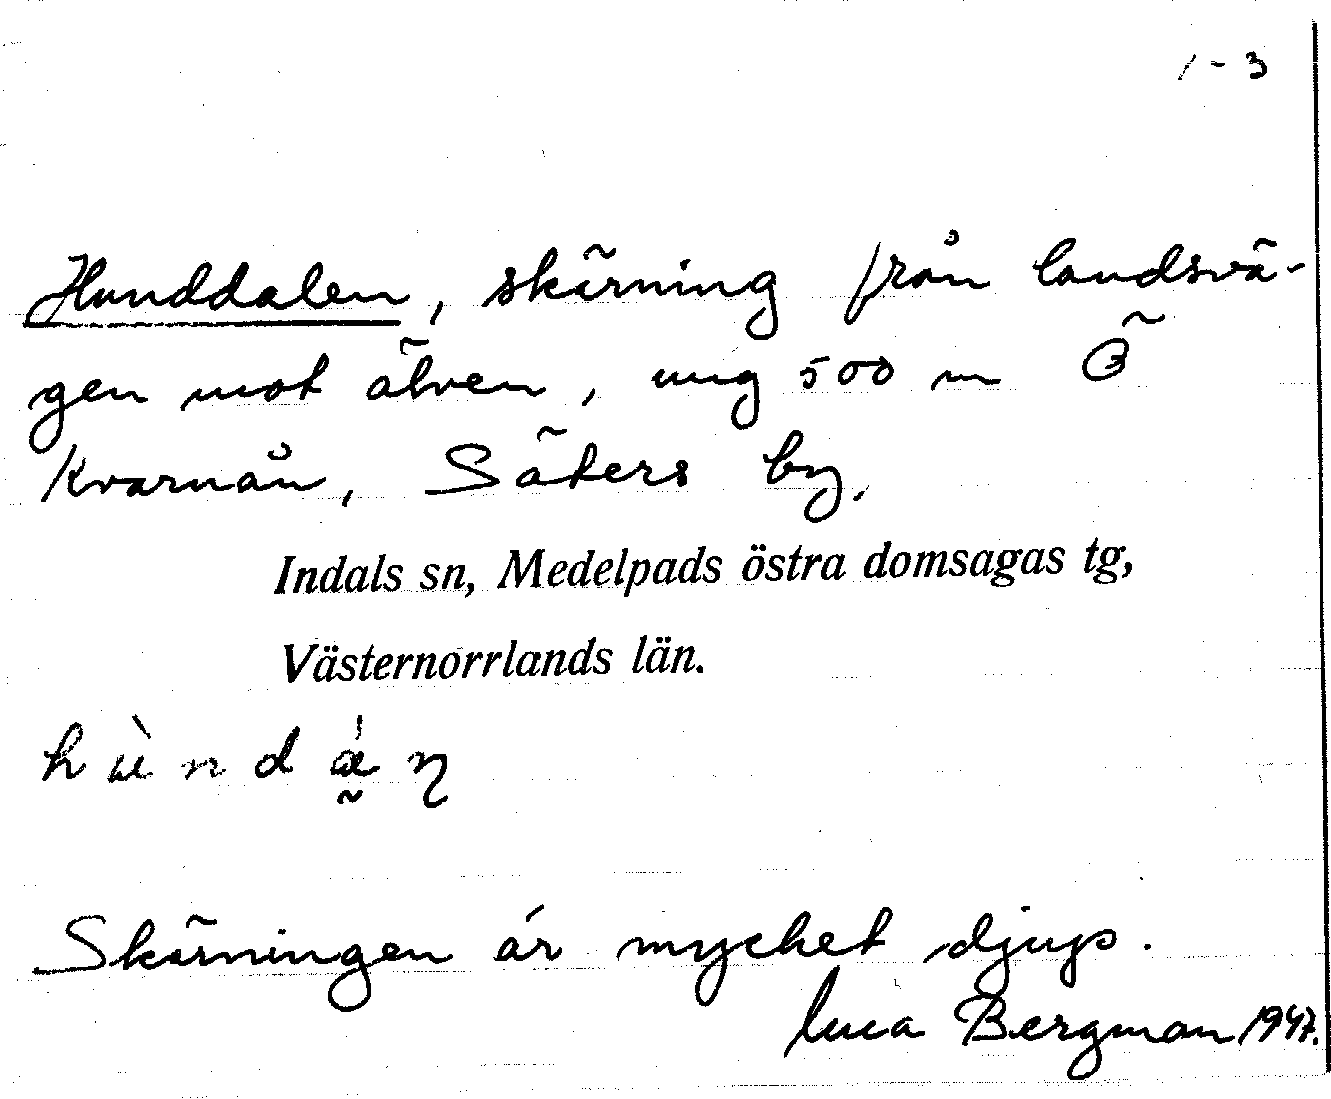 1-3
Hunddalen, skärning från landsvä-
gen mot älven, ung 500 m Ö
Kvarnån, Säters by,
Indals sn, Medelpads östra domsagas tg,
Västernorrlands län.
Skärningen är mycket djup.
Bergman 1947.